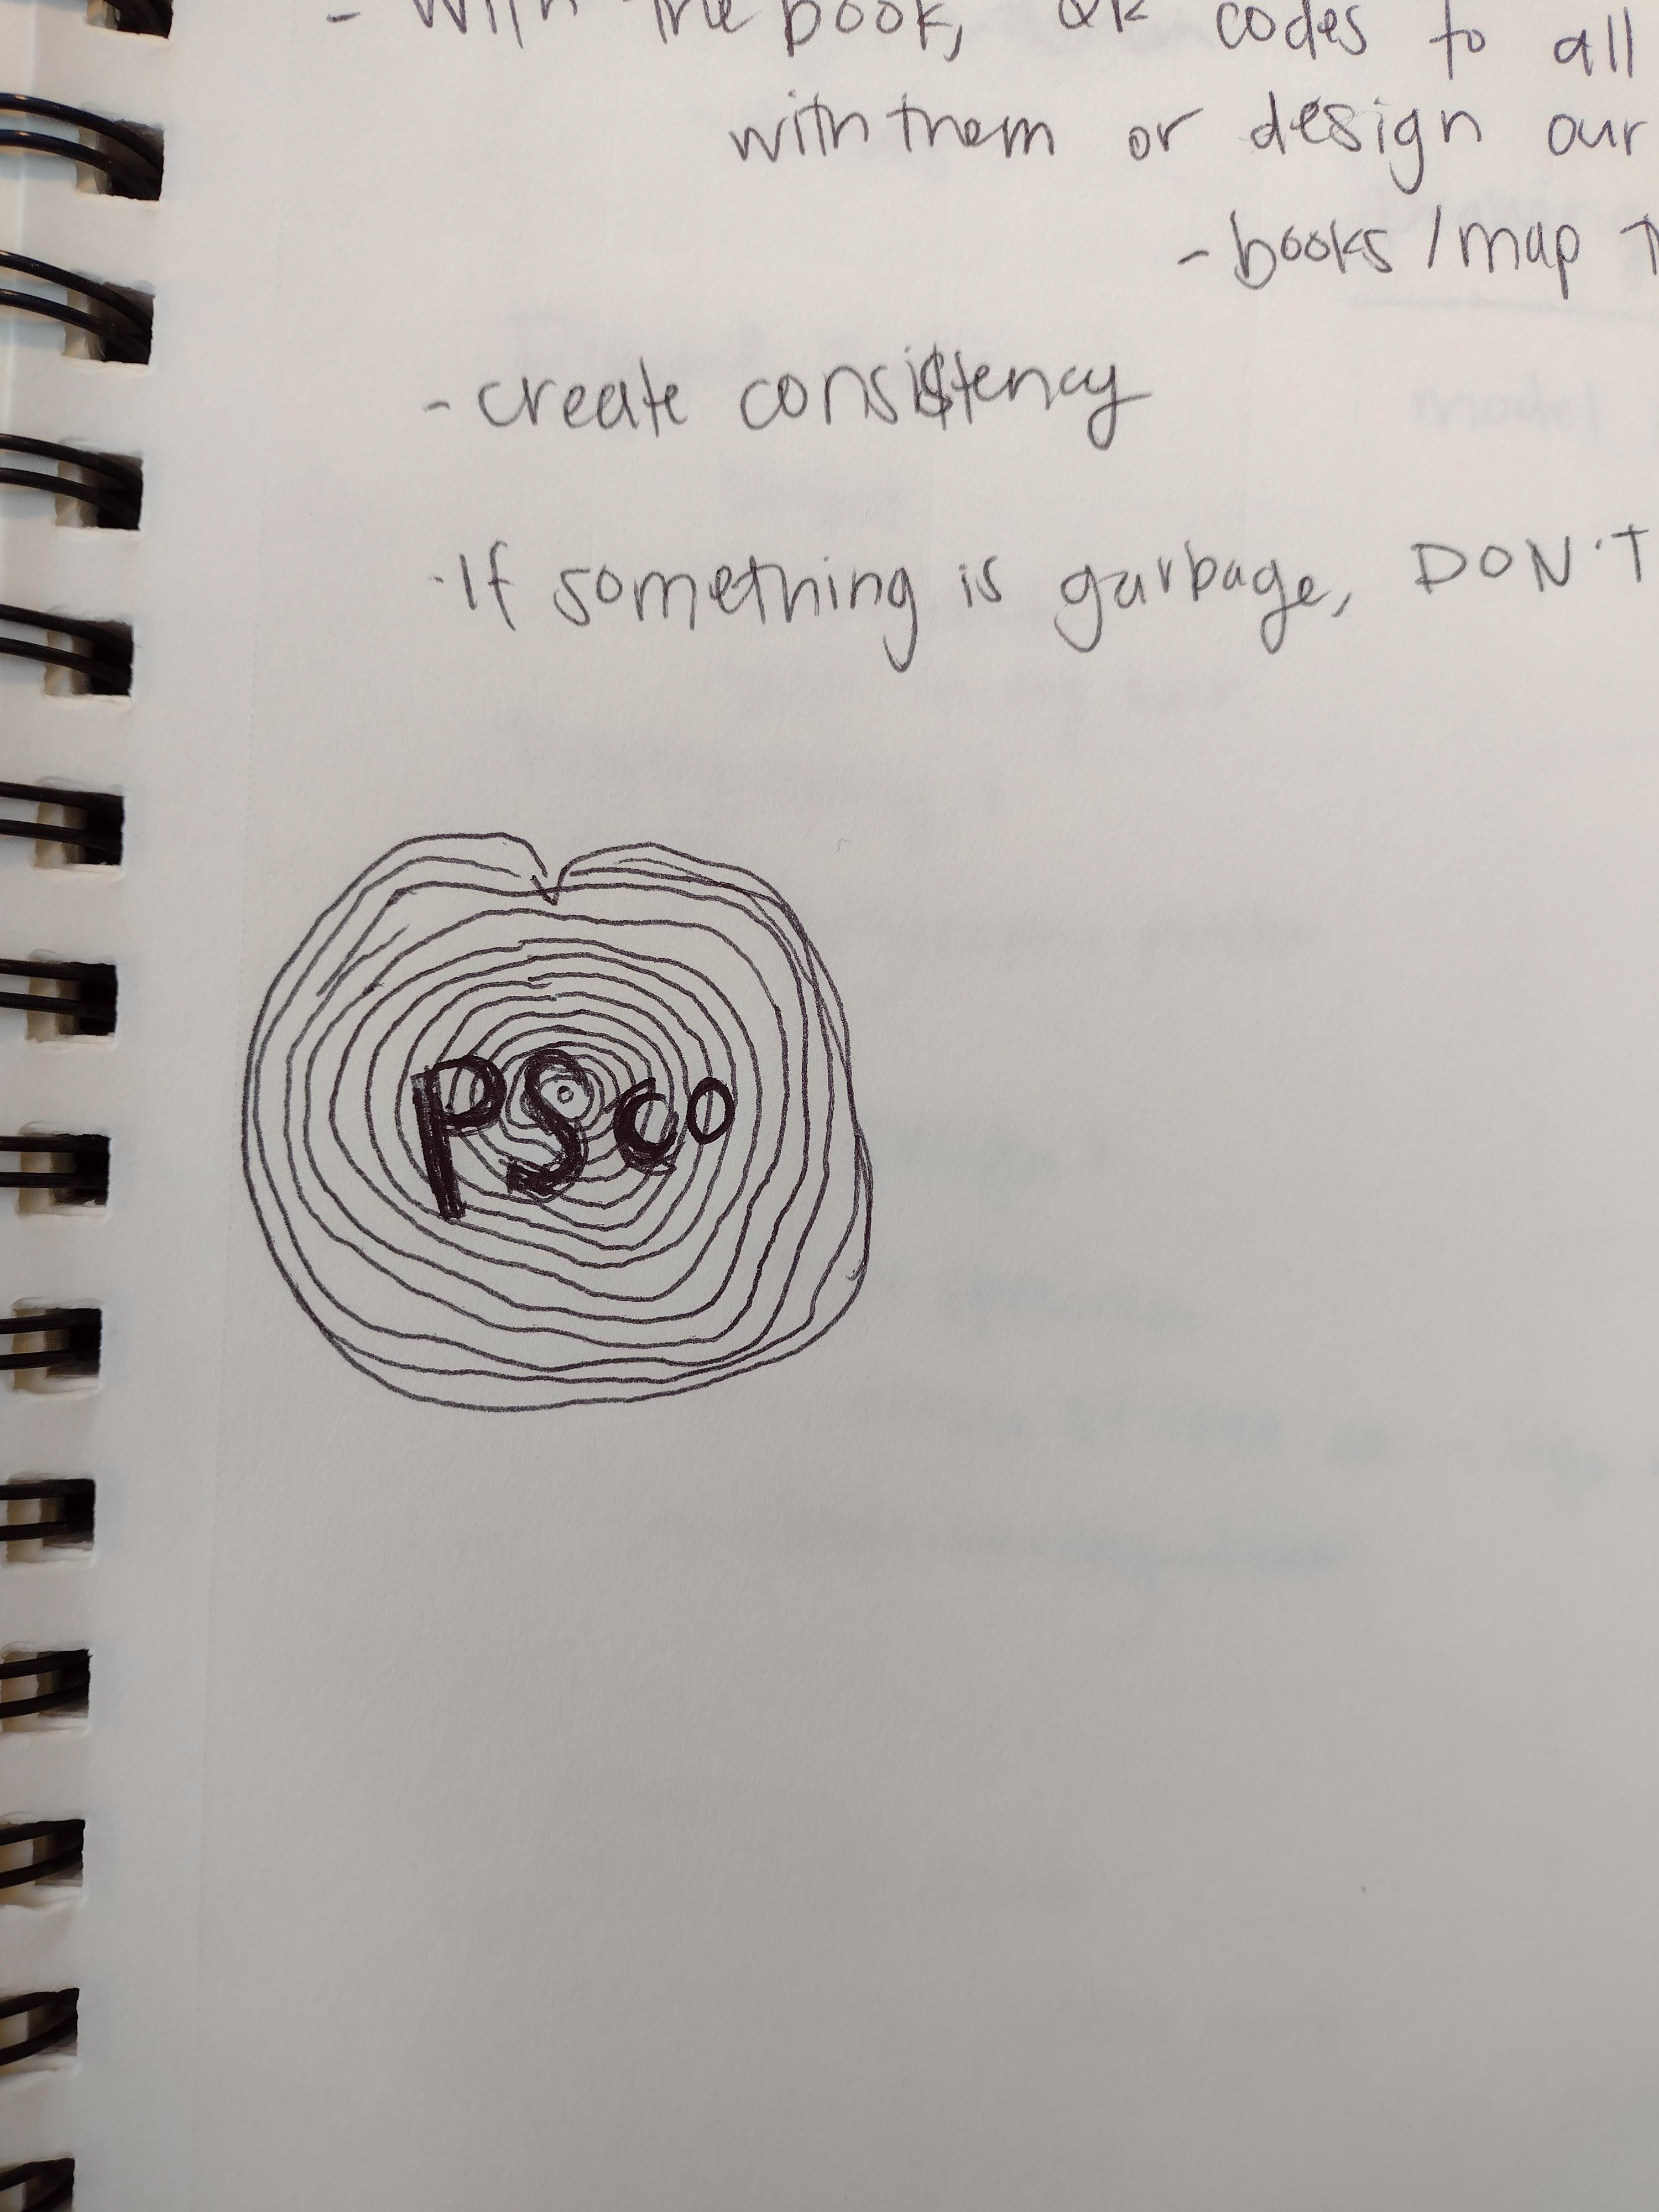 - With the book, QR codes to all
with them or design our
- books / map
- create consistency
· If something is garbage, DON'T
PSCO